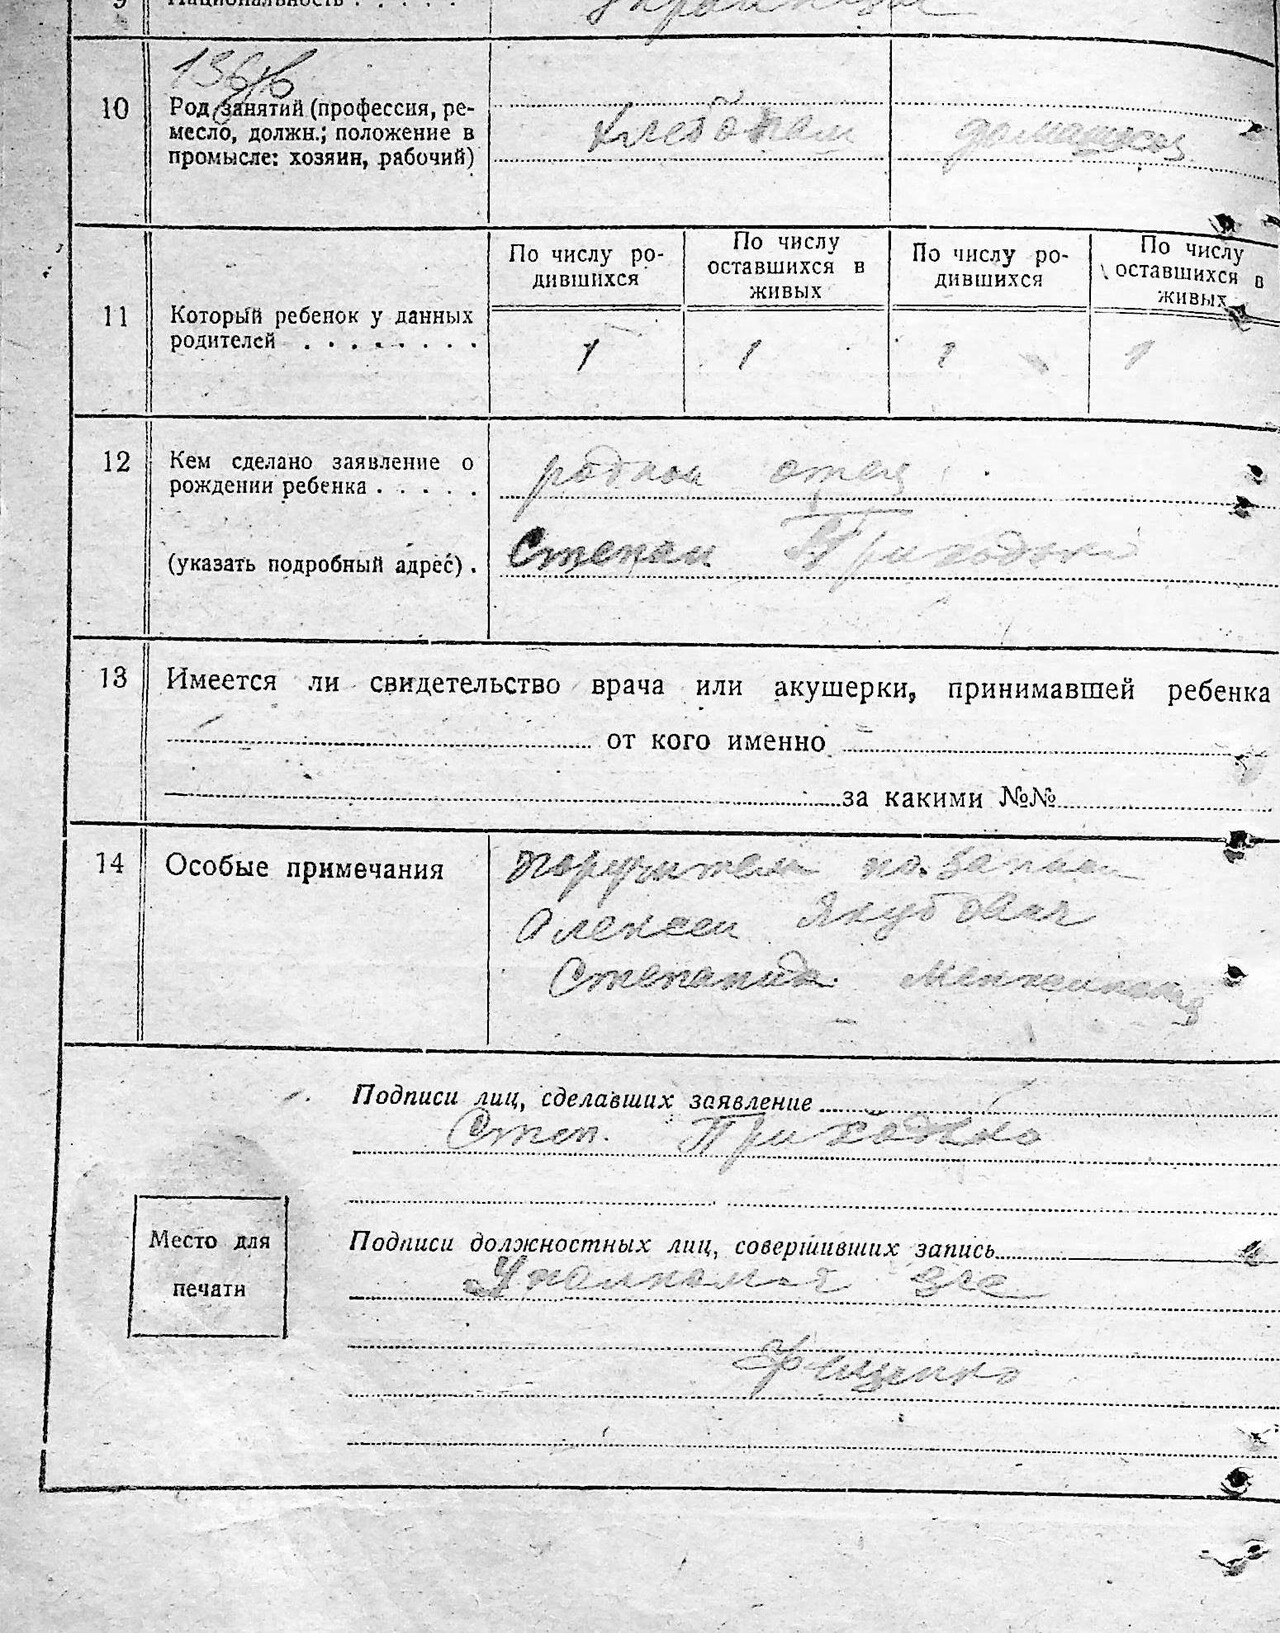 9 Национальность . . . . .
10 Род занятий (профессия, ре-
месло, должн.; положение в
промысле: хозяин, рабочий)
хлебопаш домашняя
11 Который ребенок у данных
родителей . . . . . . . .
По числу ро-
дившихся
По числу
оставшихся в
живых
По числу ро-
дившихся
По числу
оставшихся в
живых
1 1 1 1
12 Кем сделано заявление о
рождении ребенка . . . . .
(указать подробный адрес) .
родной отец
Степан Приходько
13 Имеется ли свидетельство врача или акушерки, принимавшей ребенка
от кого именно
за какими №№
14 Особые примечания
поручители по записи
Алексей Якубович
Степанида
Подписи лиц, сделавших заявление
Степ. Приходько
Место для
печати
Подписи должностных лиц, совершивших запись